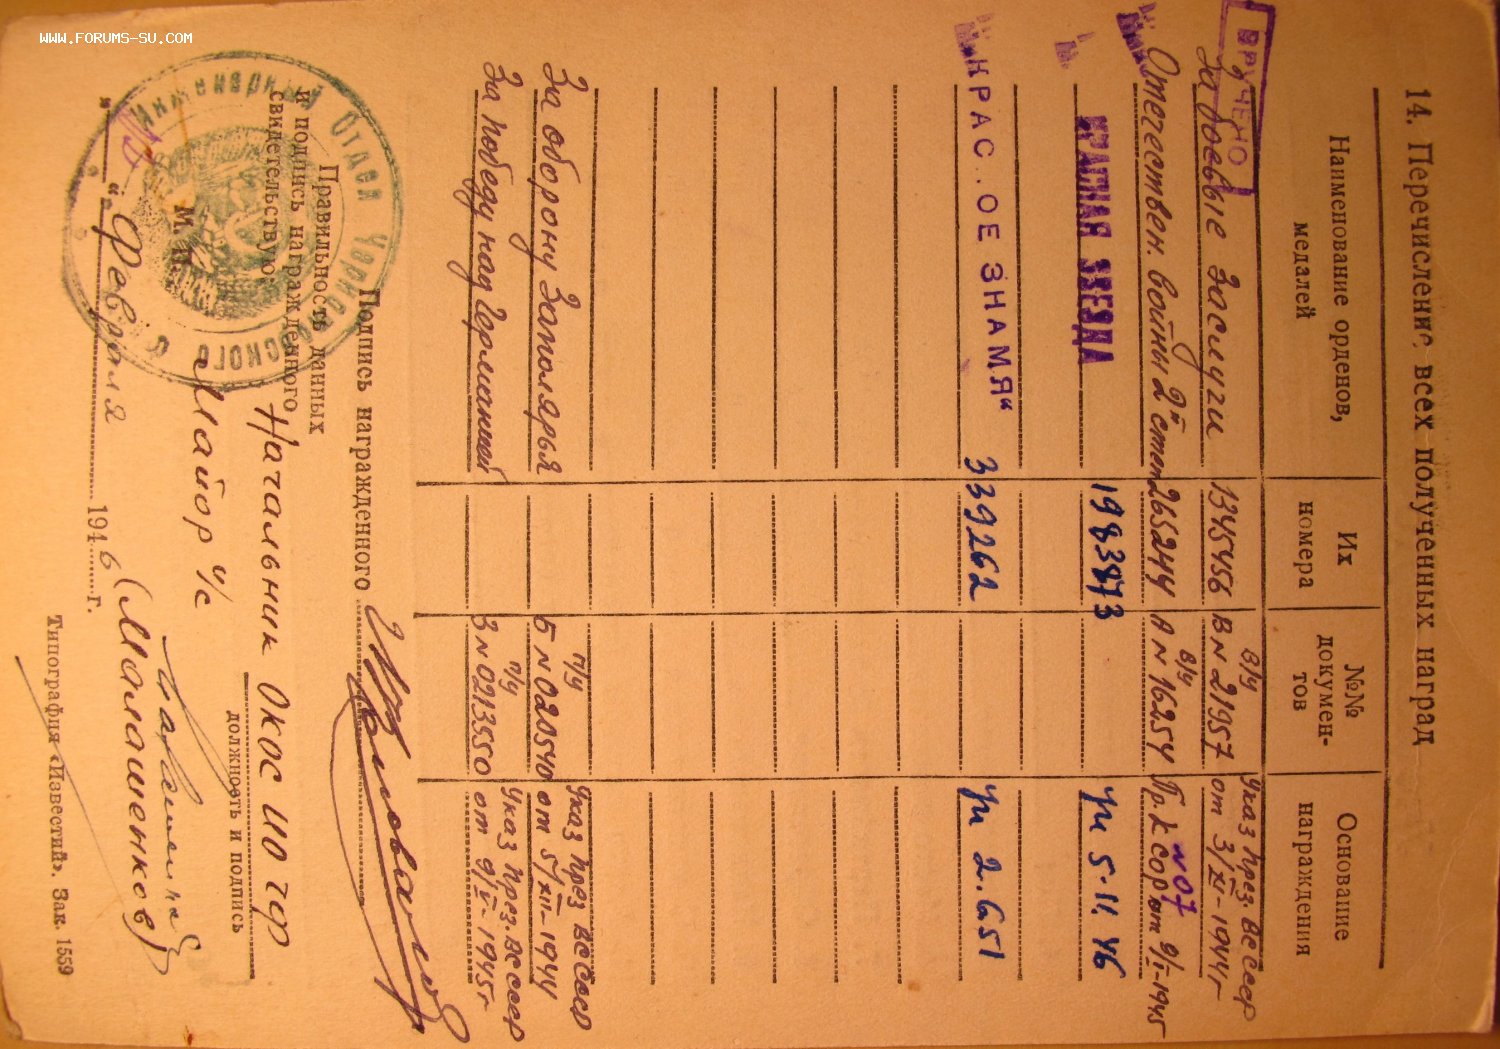 WWW.FORUMS-SU.COM
14. Перечисление всех полученных наград
Наименование орденов, медалей | Их номера | №№ документов | Основание награждения
ВРУЧЕНО
За боевые заслуги | 1345456 | в/у В N 21957 | Указ През. ВС СССР от 3/XI-1944г
Отечествен. войны 2й степ | 265244 | в/у А N 16254 | Пр. К СОР N07 от 9/I-1945
КРАСНАЯ ЗВЕЗДА | 1983873 | ук 5.11.46
КРАС..ОЕ ЗНАМЯ“ | 339262 | ук 2.6 51
За оборону Заполярья | п/у Б N 020540 | Указ През ВС СССР от 5/XII-1944
За победу над Германией | п/у З N 0213550 | Указ През. ВС СССР от 9/V-1945г
Подпись награжденного
Правильность данных
и подпись награжденного
свидетельствую:
Начальник ОКОС ИО ЧФ
должность и подпись
М. П.
Майор и/с
(Малашенков)
„ “ Февраля 1946 г.
Инженерный Отдел Черноморского
Типография «Известий». Зак. 1559